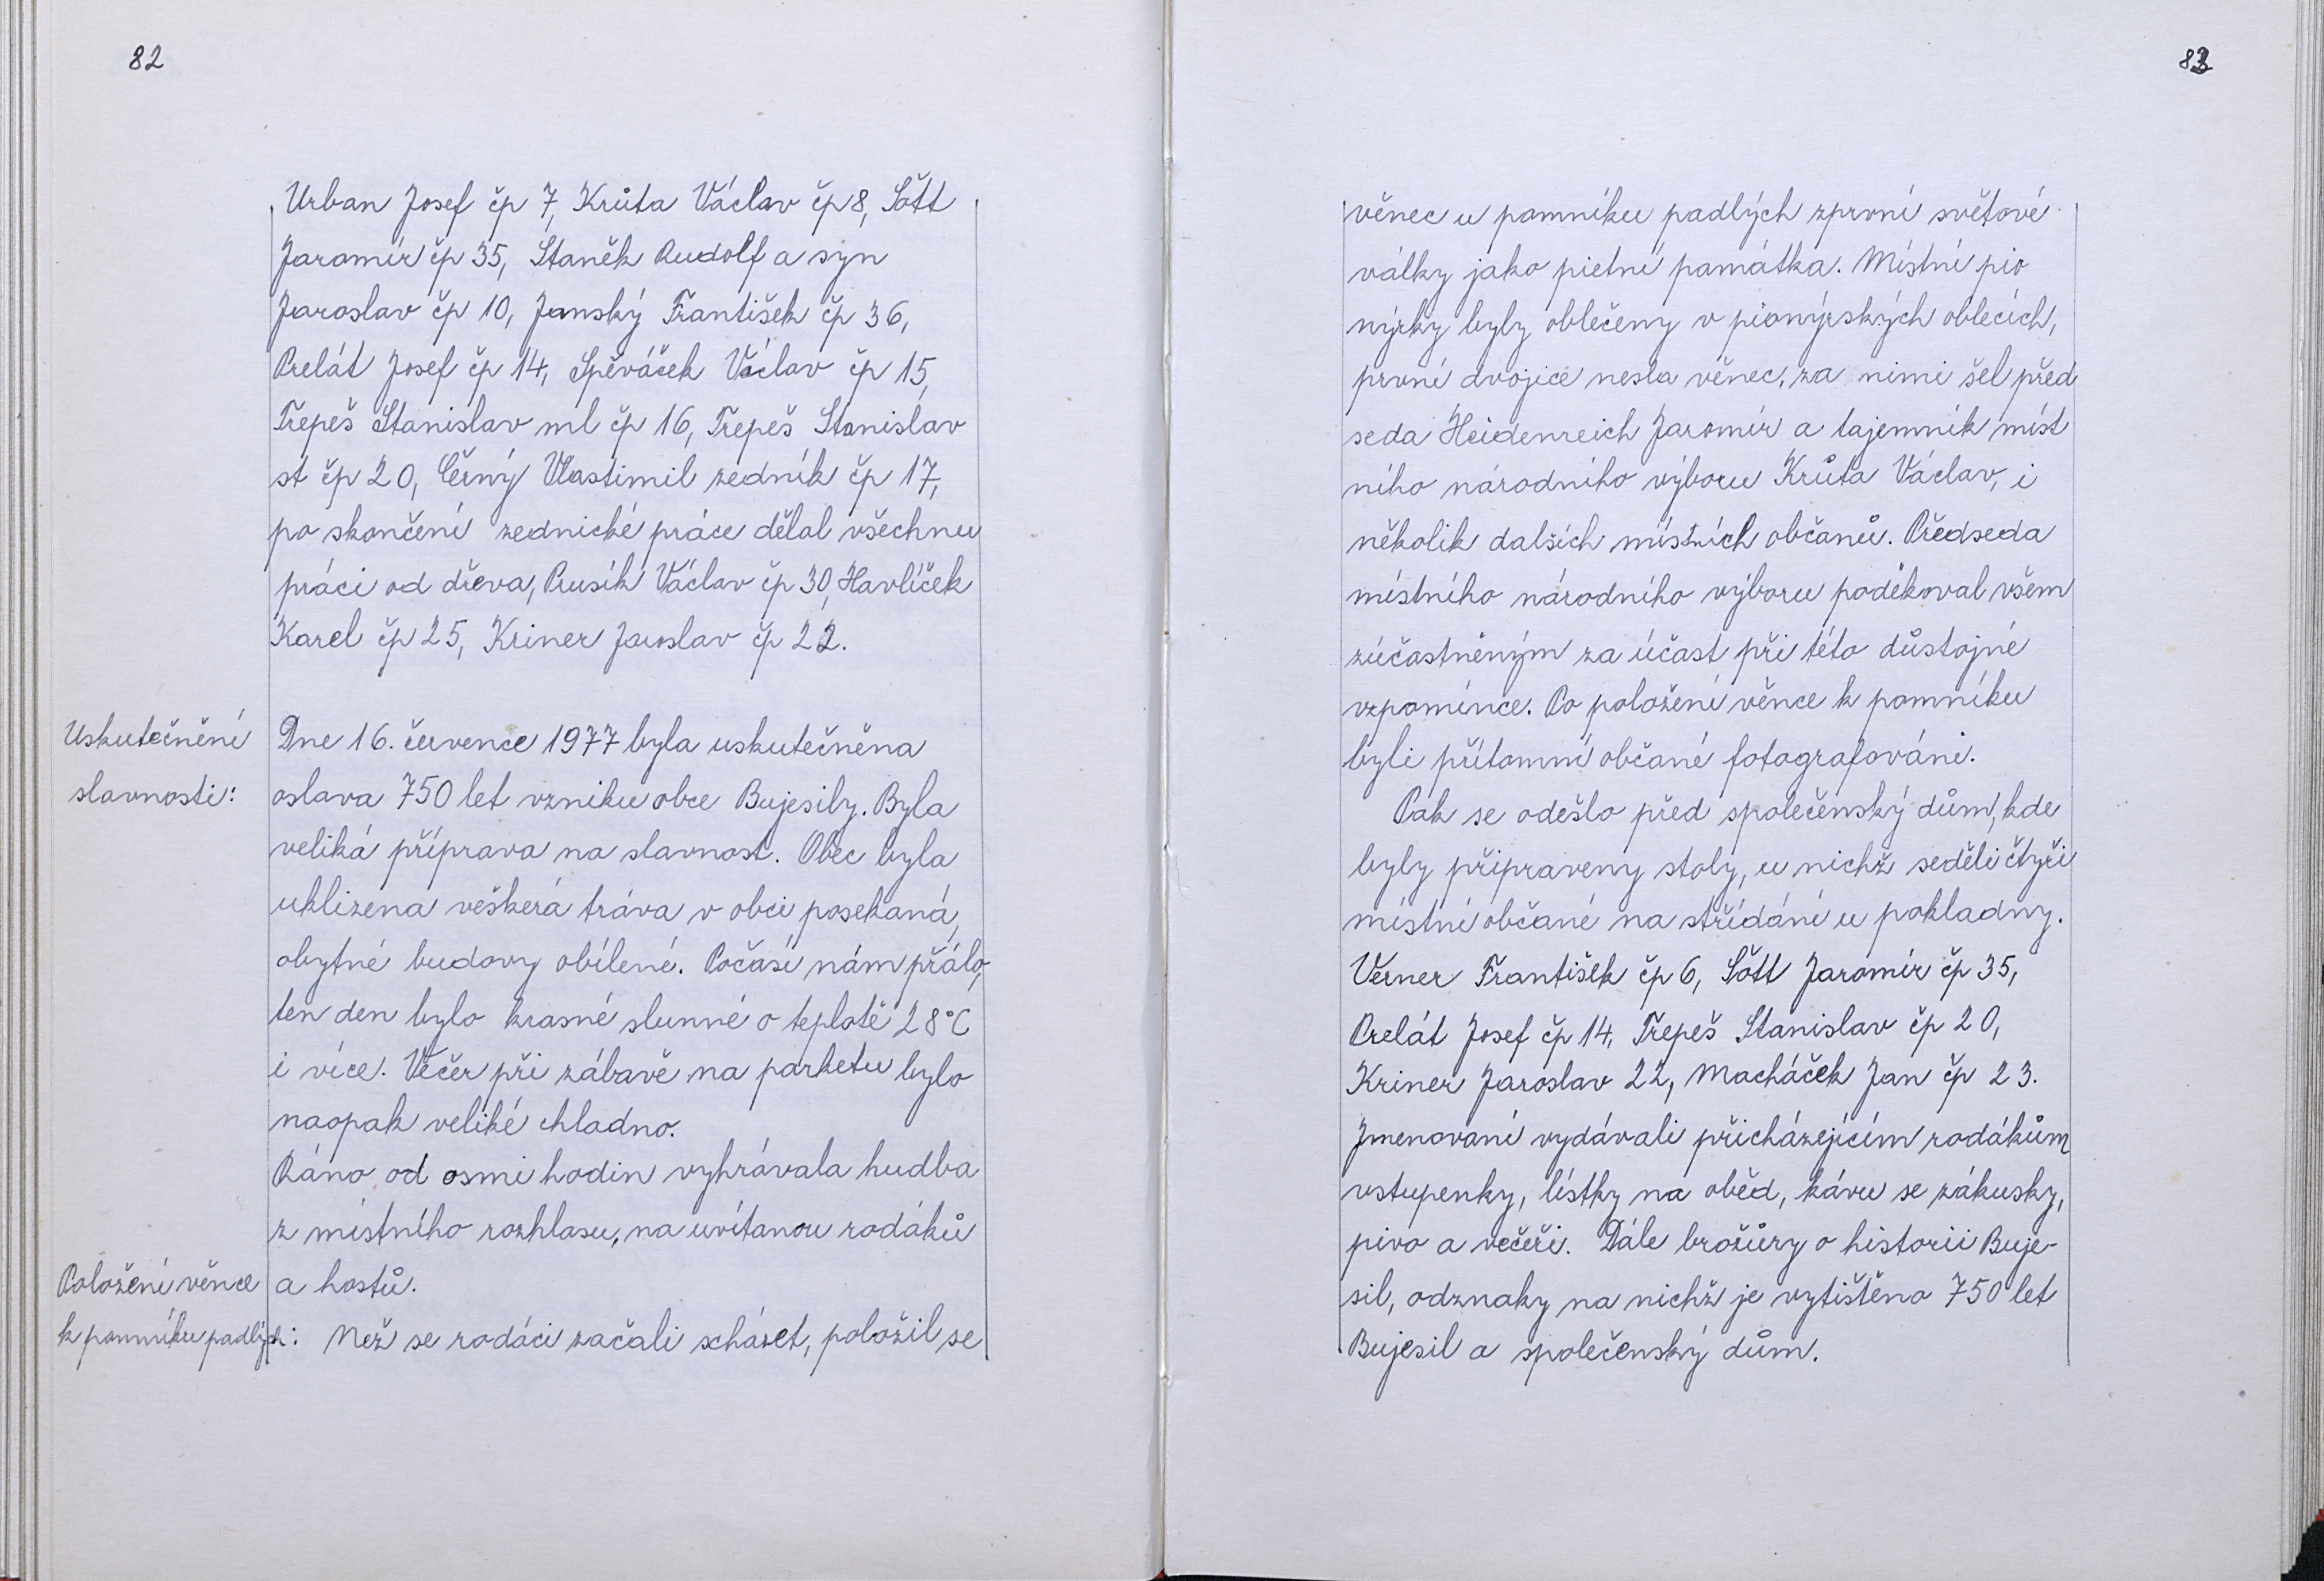 82
Urban Josef čp 7, Krůta Václav čp 8, Šótt
Jaromír čp 35, Staněk Rudolf a syn
Jaroslav čp 10, Janský František čp 36,
Prelát Josef čp 14, Spěváček Václav čp 15,
Třepeš Stanislav ml čp 16, Třepeš Stanislav
st čp 20, Černý Vlastimil zedník čp 17,
po skončení zednické práce dělal všechnu
práci od dřeva, Prusík Václav čp 30, Havlíček
Karel čp 25, Kriner Jaroslav čp 22.
Uskutečnění
slavnosti:
Dne 16. července 1977 byla uskutečněna
oslava 750 let vzniku obce Bujesily. Byla
veliká příprava na slavnost. Obec byla
uklizena veškerá tráva v obci posekaná,
obytné budovy obílené. Počasí nám přálo,
ten den bylo krasné slunné o teplotě 28°C
i více. Večer při zábavě na parketu bylo
naopak veliké chladno.
Ráno od osmi hodin vyhrávala hudba
z místního rozhlasu, na uvítanou rodáků
a hostů.
Položení věnce
k pomníku padlých:
Než se rodáci začali scházet, položil se
83
věnec u pomníku padlých zprvní světové
války jako pietní památka. Místní pio
nýrky byly oblečeny v pionýrských oblecích,
první dvojice nesla věnec, za nimi šel před
seda Heidenreich Jaromír a tajemník míst
ního národního výboru Krůta Václav, i
několik dalších místních občanů. Předseda
místního národního výboru poděkoval všem
zúčastněným za účast při této důstojné
vzpomínce. Po položení věnce k pomníku
byli přítomní občané fotografováni.
Pak se odešlo před společenský dům, kde
byly připraveny stoly, u nichž seděli čtyři
místní občané na střídání u pokladny.
Verner František čp 6, Šótt Jaromír čp 35,
Prelát Josef čp 14, Třepeš Stanislav čp 20,
Kriner Jaroslav 22, Macháček Jan čp 23.
Jmenovaní vydávali přicházejícím rodákům
vstupenky, lístky na oběd, kávu se zákusky,
pivo a večeři. Dále brožůry o historii Buje-
sil, odznaky na nichž je vytištěno 750 let
Bujesil a společenský dům.